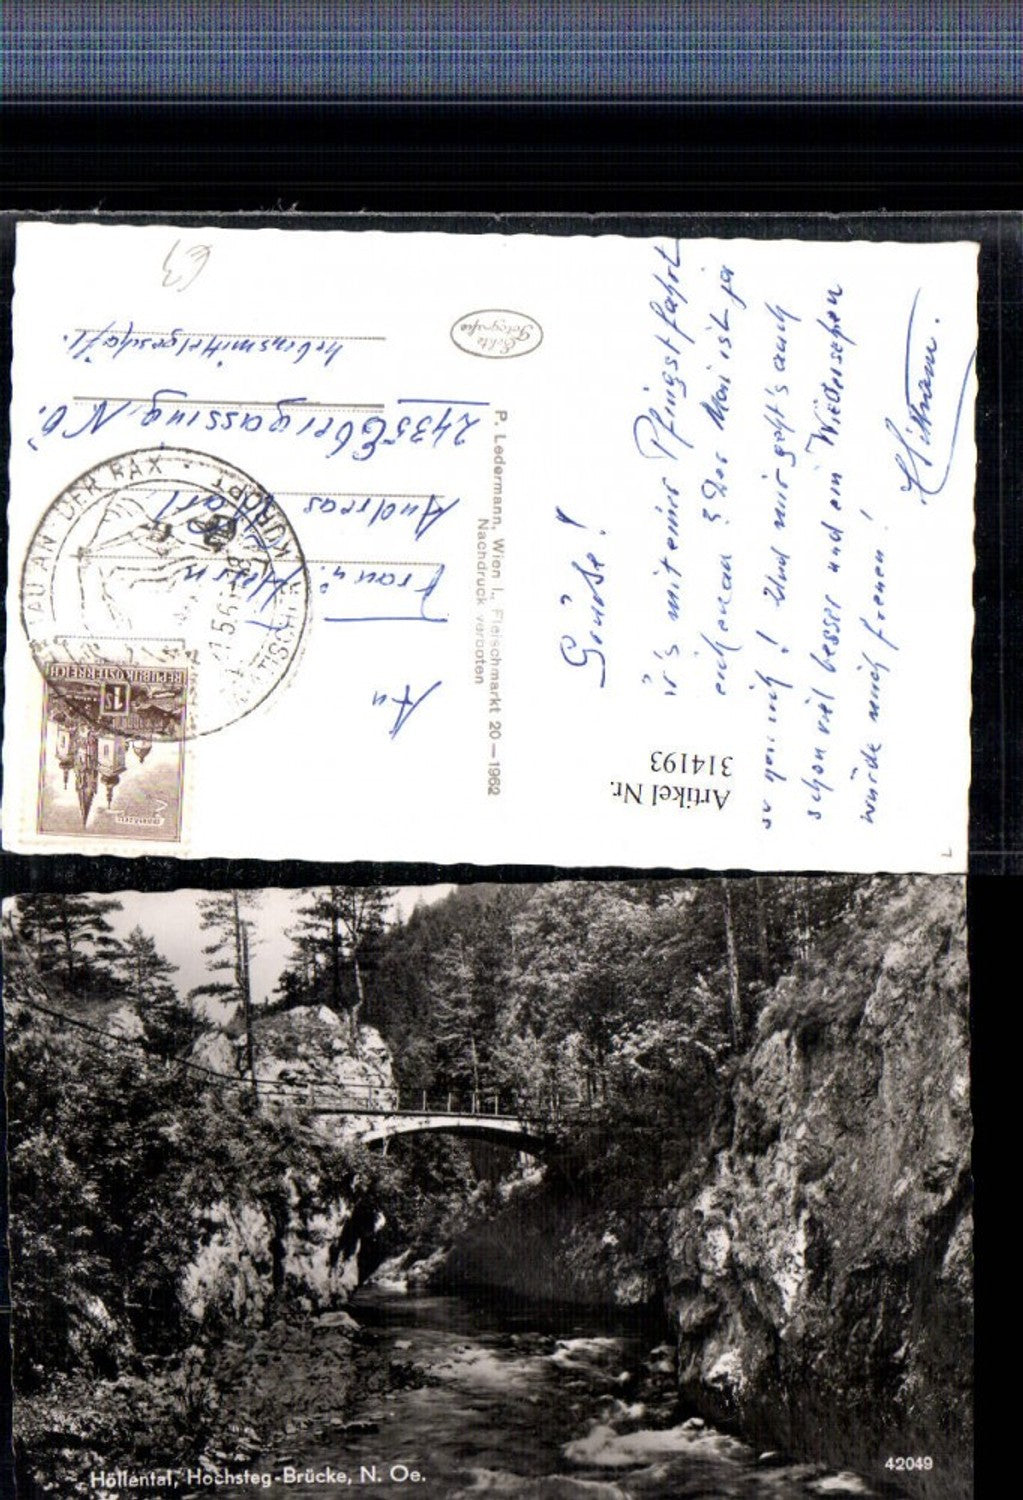 Grüße!
ist's mit einer Pfingstfahrt
euch genau? Der Mai ist ja
so grün! Und mir geht's auch
schon viel besser und ein Wiedersehen
würde mich freuen!
P. Ledermann, Wien I., Fleischmarkt 20 — 1962
Nachdruck verboten
Echte
Fotografie
An
Frau u. Herrn
Andreas
2435 Ebergassing, N.Ö.
Lebensmittelgeschäft.
AU AN DER RAX
KURORT
REPUBLIK ÖSTERREICH
1S
Artikel Nr.
314193
Höllental, Hochsteg-Brücke, N. Oe.
42049